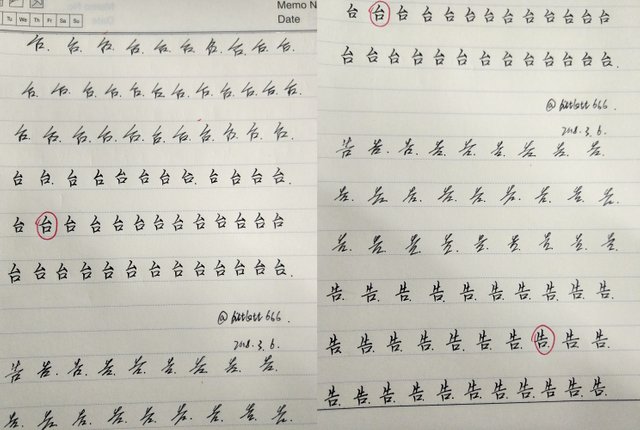 Memo N
Date
Tu We Th Fr Sa Su
台. 台. 台. 台. 台. 台. 台. 台. 台. 台.
台. 台. 台. 台. 台. 台. 台. 台. 台. 台. 台. 台.
台. 台. 台. 台. 台. 台. 台. 台. 台. 台. 台.
台. 台. 台 台 台 台 台 台. 台 台 台 台.
台 台 台 台 台 台 台 台 台 台 台 台 台
台 台 台 台 台 台 台 台 台 台 台 台 台.
2018.3.6.
告 告. 告. 告. 告. 告. 告. 告. 告.
告. 告. 告. 告. 告. 告. 告. 告. 告.
台 台 台 台 台 台 台 台 台 台 台 台 台
台 台 台 台 台 台 台 台 台 台 台 台 台.
2018.3.6.
告 告. 告. 告. 告. 告. 告. 告. 告.
告. 告. 告. 告. 告. 告. 告. 告. 告.
告. 告. 告. 告. 告. 告. 告. 告. 告.
告. 告. 告. 告. 告. 告. 告. 告. 告. 告.
告. 告. 告. 告. 告. 告. 告. 告. 告. 告.
告. 告. 告. 告. 告. 告. 告. 告. 告. 告. 告.